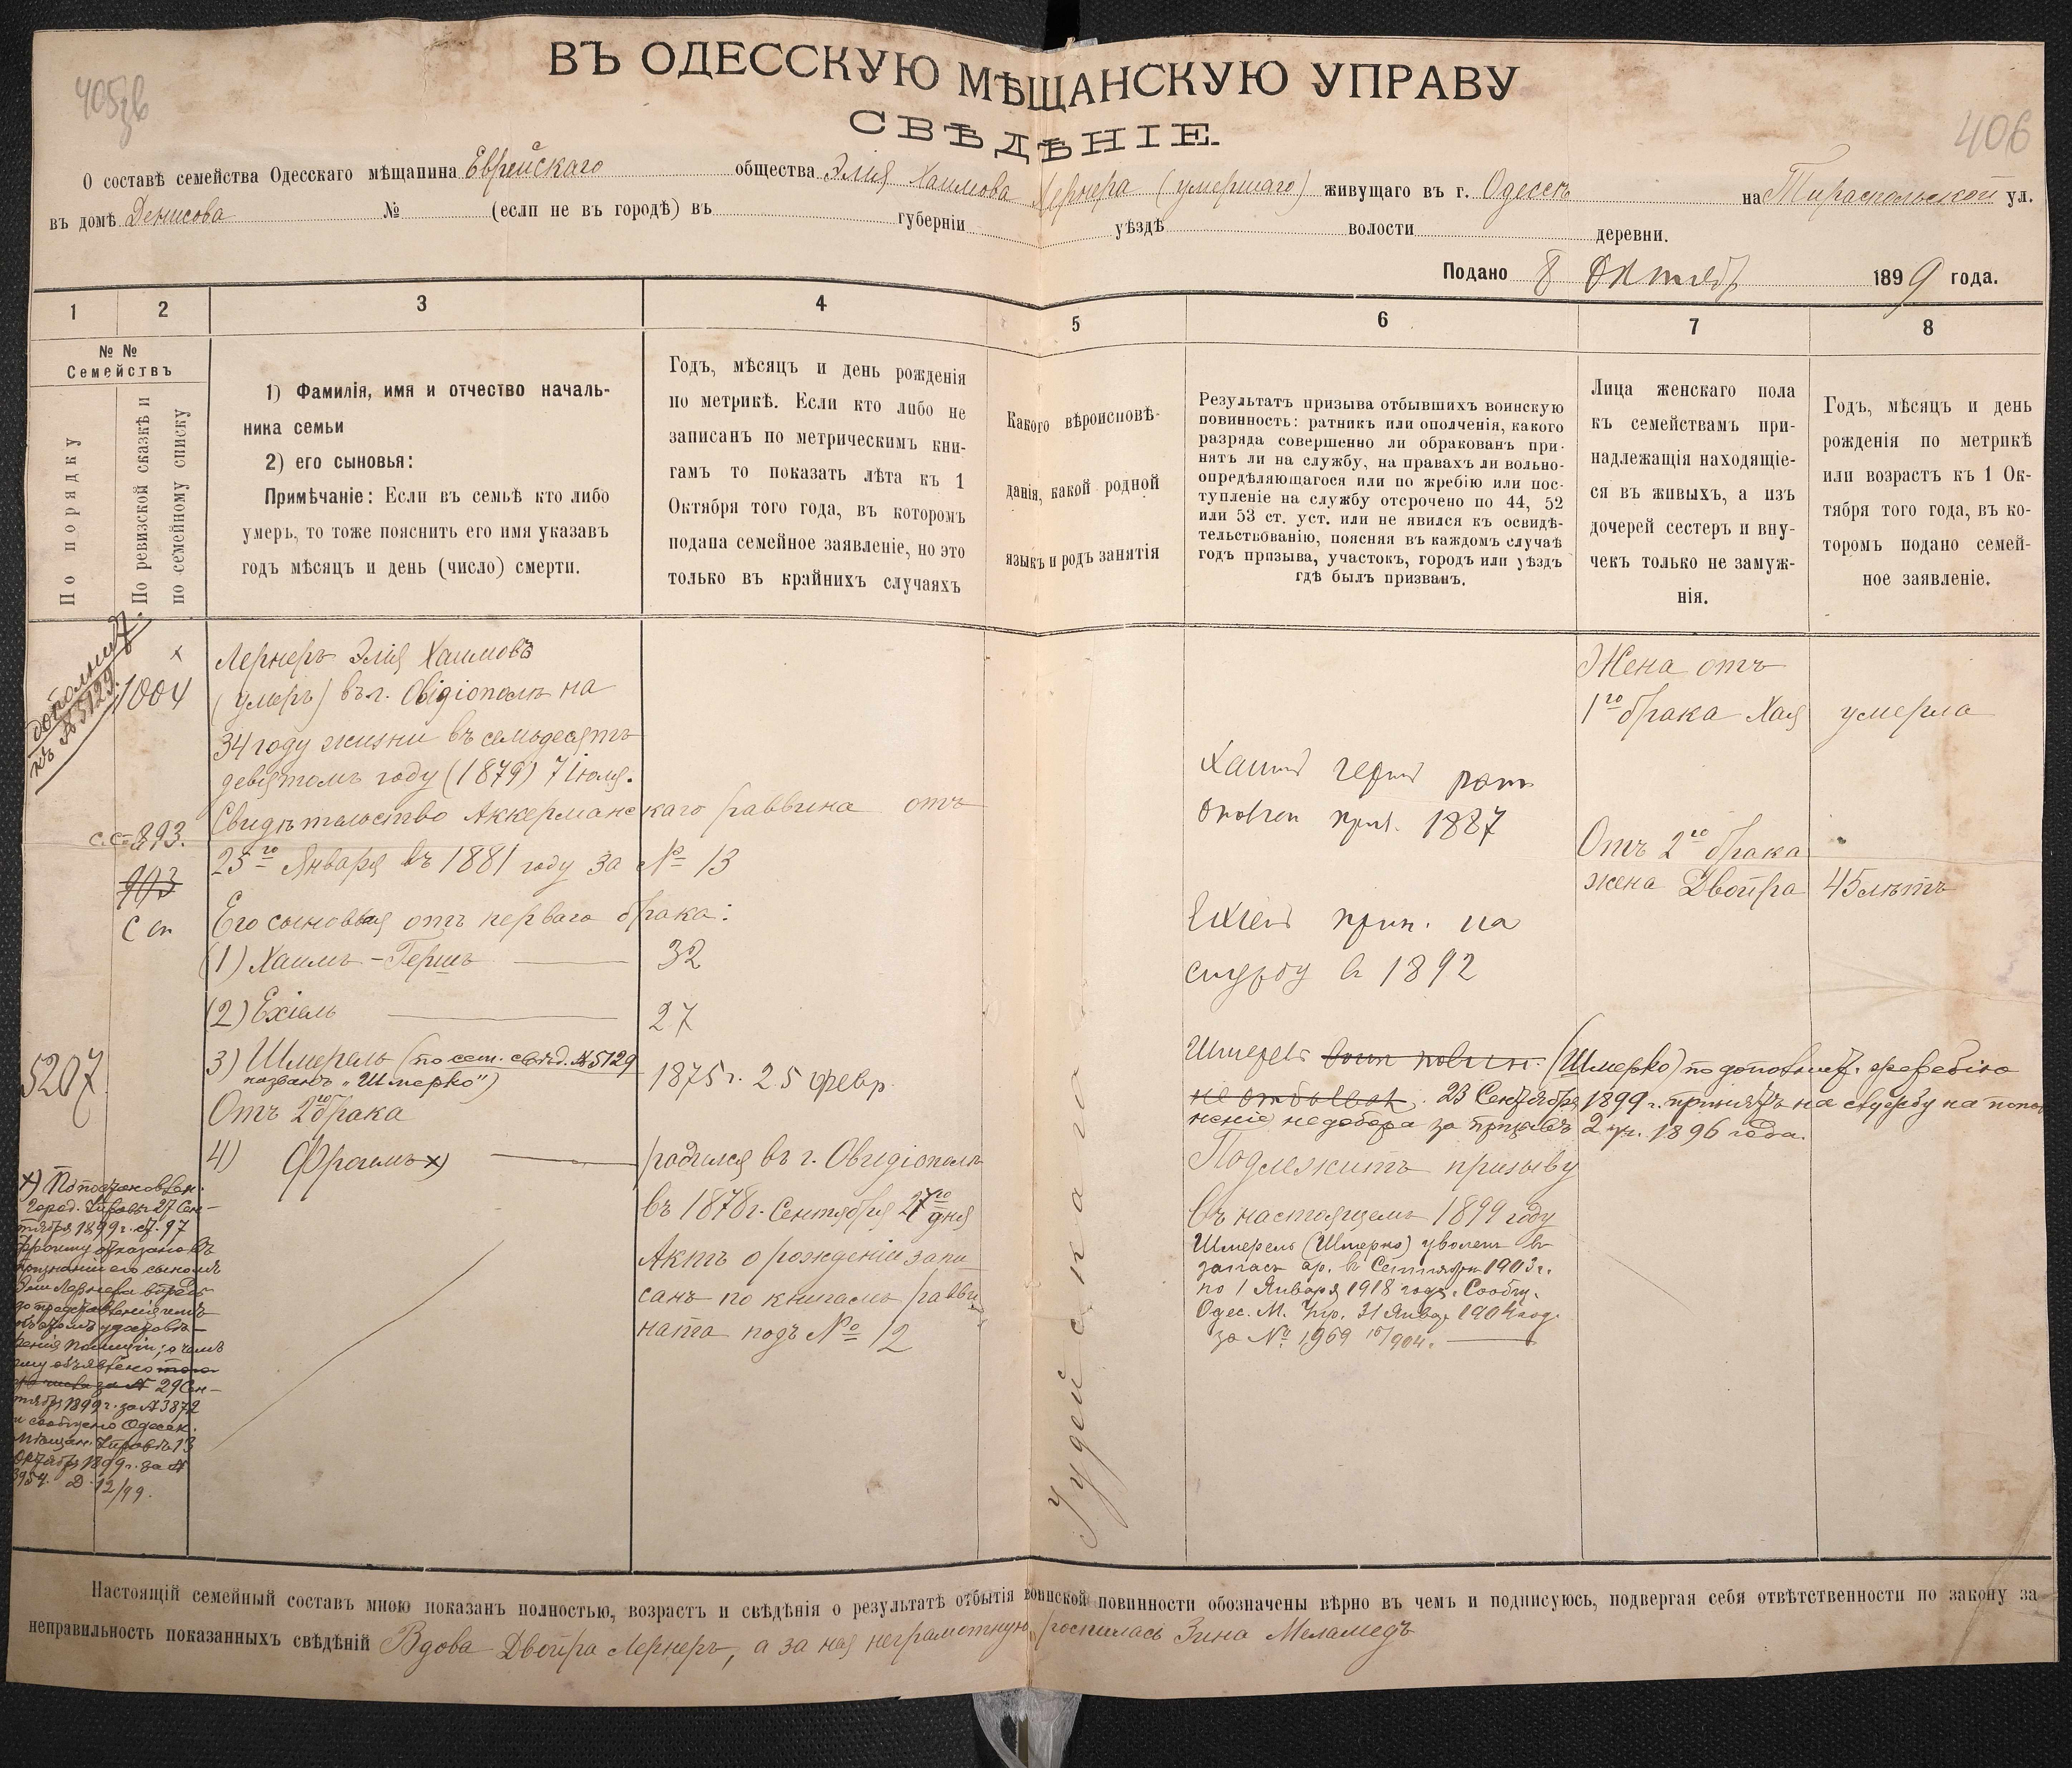 405зв
406
ВЪ ОДЕССКУЮ МѢЩАНСКУЮ УПРАВУ
СВѢДѢНІЕ.
О составѣ семейства Одесскаго мѣщанина Еврейскаго общества Элія Хаимова Лернера (умершаго) живущаго въ г. Одессѣ на Тираспольской ул.
въ домѣ Денисова № (если не въ городѣ) въ губерніи уѣздѣ волости деревни.
Подано 8 Октябр 1899 года.
1 2 3 4 5 6 7 8
№ №
Семействъ
По порядку
По ревизской сказкѣ и
по семейному списку
1) Фамилія, имя и отчество началь-
ника семьи
2) его сыновья:
Примѣчаніе: Если въ семьѣ кто либо
умеръ, то тоже пояснить его имя указавъ
годъ мѣсяцъ и день (число) смерти.
Годъ, мѣсяцъ и день рожденія
по метрикѣ. Если кто либо не
записанъ по метрическимъ кни-
гамъ то показать лѣта къ 1
Октября того года, въ которомъ
подана семейное заявленіе, но это
только въ крайнихъ случаяхъ
Какого вѣроисповѣ-
данія, какой родной
языкъ и родъ занятія
Результатъ призыва отбывшихъ воинскую
повинность: ратникъ или ополченія, какого
разряда совершенно ли обракованъ при-
нятъ ли на службу, на правахъ ли вольно-
опредѣляющагося или по жребію или пос-
тупленіе на службу отсрочено по 44, 52
или 53 ст. уст. или не явился къ освидѣ-
тельствованію, поясняя въ каждомъ случаѣ
годъ призыва, участокъ, городъ или уѣздъ
гдѣ былъ призванъ.
Лица женскаго пола
къ семействамъ при-
надлежащія находящіе-
ся въ живыхъ, а изъ
дочерей сестеръ и вну-
чекъ только не замуж-
нія.
Годъ, мѣсяцъ и день
рожденія по метрикѣ
или возрастъ къ 1 Ок-
тября того года, въ ко-
торомъ подано семей-
ное заявленіе.
къ № 5129
х
1004
с.с. 893.
903
С сп
5207
Лернеръ Элія Хаимовъ
(умеръ) въ г. Овідіополѣ на
34 году жизни въ семьдесятъ
девятомъ году (1879) 7 Іюля.
Свидѣтельство Аккерманскаго раввина отъ
25го Января въ 1881 году за № 13
Его сыновья отъ перваго брака:
(1) Хаимъ-Гершъ 32
(2) Ехіель 27
3) Шмерель (по сем. свѣд. № 5129
названъ „Шмерко") 1875 г. 25 февр.
Отъ 2го брака
4) Фроимъ х)
родился въ г. Овидіополѣ
въ 1878 г. Сентября 27го дня
Актъ о рожденіи запи
санъ по книгамъ равви
ната подъ № 12
Іудейскаго
Хаимъ Гершъ рат.
ополчен приз. 1887
Ехіель прин. на
службу в 1892
Шмерель (Шмерко) по дополнит. жеребію
не отбывал. 23 Сентября 1899 г. принятъ на службу на попол
неніе недобора за призывъ 2 уч. 1896 года.
Подлежитъ призыву
въ настоящемъ 1899 году
Шмерель (Шмерко) уволен в
запас ар. в Сентября 1903 г.
по 1 Января 1918 года. Сообщ.
Одес. М. Упр. 31 Январ 1904 год.
за № 1969
Жена отъ
1го брака Хая умерла
Отъ 2го брака
жена Двойра 45 лѣтъ
х) По постановлен.
Город. Управы 27 Сен-
тября 1899 г. ст. 97
Фроиму отказано въ
признаніи его сыномъ
Эли Лернера впредь
до представленія имъ
объ этомъ удостовѣ-
ренія полиціи; о чемъ
ему объявлено
29 Сен-
тября 1899 г. за № 3872
и сообщено Одесск.
Мѣщан. Управѣ 13
Октября 1899 г. за №
3954. 12/99.
Настоящій семейный составъ мною показанъ полностью, возрастъ и свѣдѣнія о результатѣ отбытія воинской повинности обозначены вѣрно въ чемъ и подписуюсь, подвергая себя отвѣтственности по закону за
неправильность показанныхъ свѣдѣній Вдова Двойра Лернеръ, а за нея неграмотную росписась Зина Меламедъ